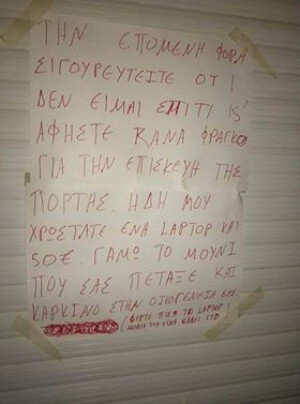 ΤΗΝ ΕΠΟΜΕΝΗ ΦΟΡΑ
ΣΙΓΟΥΡΕΥΤΕΙΤΕ ΟΤΙ
ΔΕΝ ΕΙΜΑΙ ΣΠΙΤΙ
ΑΦΗΣΤΕ ΚΑΝΑ ΦΡΑΓΚΟ
ΓΙΑ ΤΗΝ ΕΠΙΣΚΕΥΗ ΤΗΣ
ΠΟΡΤΗΣ. ΗΔΗ ΜΟΥ
ΧΡΩΣΤΑΤΕ ΕΝΑ LAPTOP ΚΑΙ
50€. ΓΑΜΩ ΤΟ ΜΟΥΝΙ
ΠΟΥ ΣΑΣ ΠΕΤΑΞΕ ΚΑΙ
ΚΑΡΚΙΝΟ ΣΤΗΝ ΟΙΚΟΓΕΝΕΙΑ ΣΑΣ.
(ΦΕΡΤΕ ΠΙΣΩ ΤΟ LAPTOP